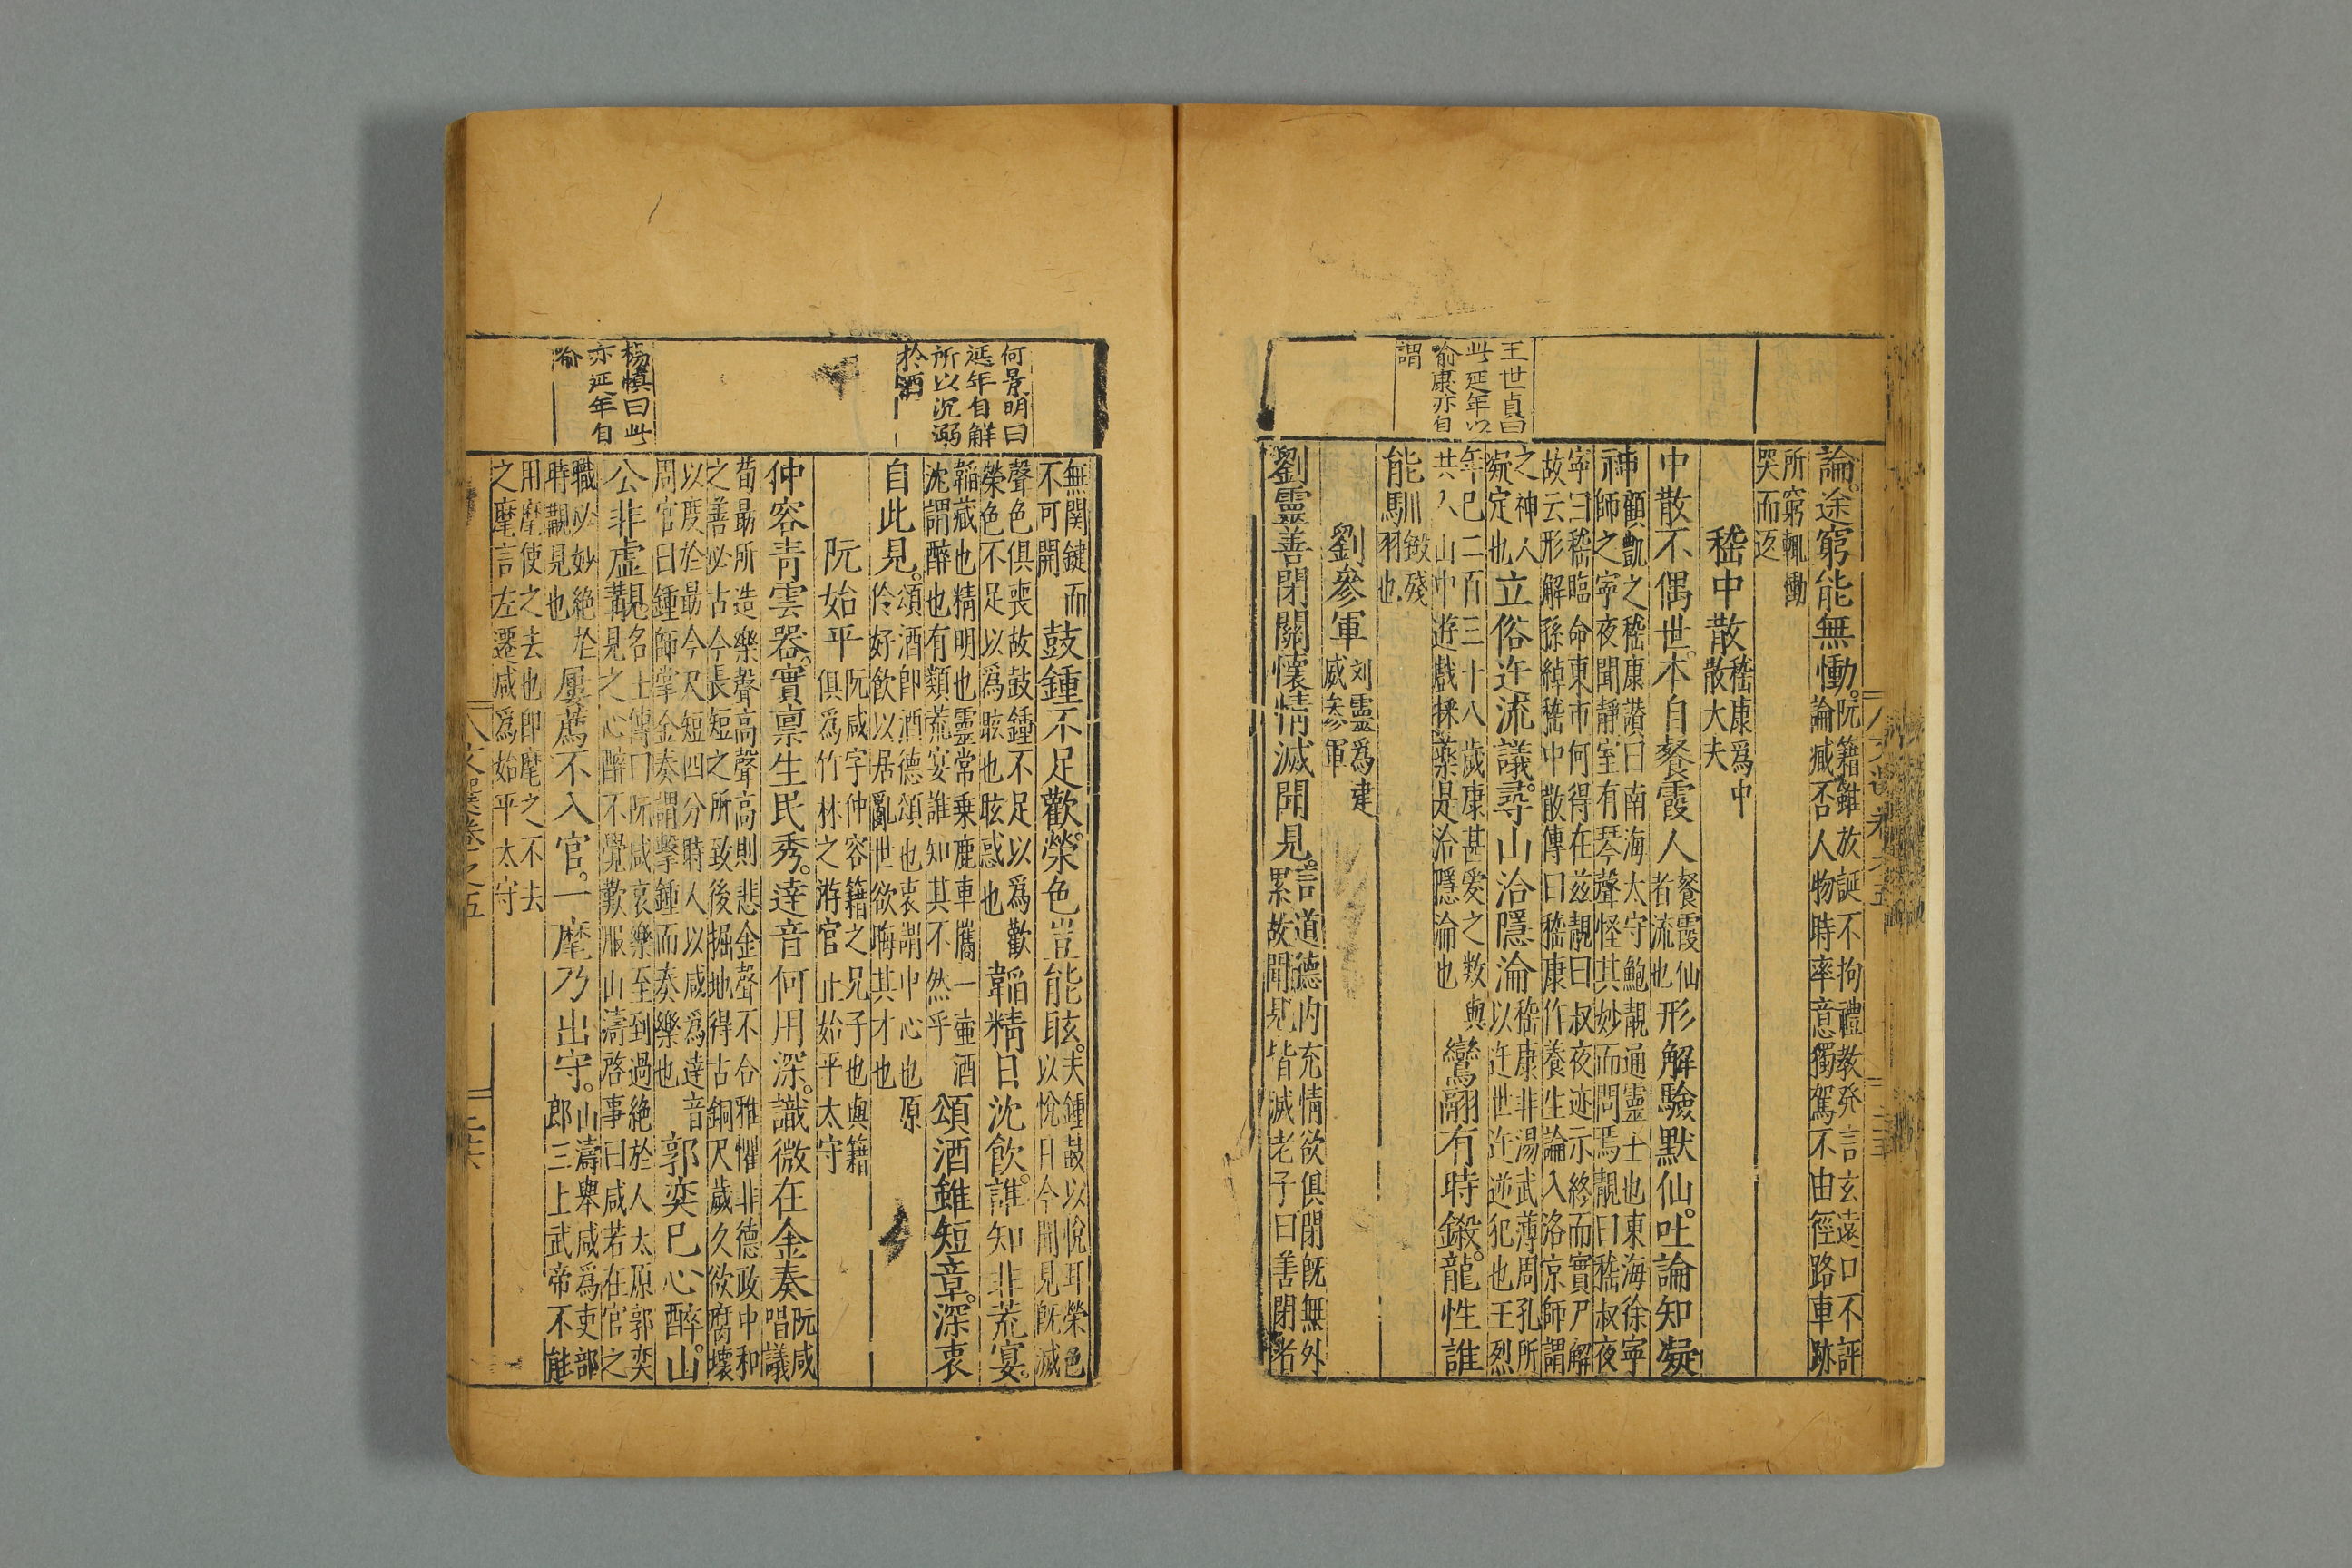 王世貞曰
此延年以
喻康亦自
謂
論。途窮能無慟。阮籍雖放誕不拘禮教発言玄遠口不評論臧否人物時率意獨駕不由徑路車跡
所窮輒慟哭而返
嵇中散嵇康爲中散大夫
中散不偶世。本自餐霞人餐霞仙者流也形解驗默仙。吐論知凝
神顧凱之嵇康讃曰南海太守鮑靚通靈士也東海徐寧師之寧夜聞靜室有琴聲怪其妙而問焉靚曰嵇叔夜
寧曰嵇臨命東市何得在兹靚曰叔夜迹示終而實尸解故云形解孫綽嵇中散傳曰嵇康作養生論入洛京師謂
之神人凝定也立俗迕流議。尋山洽隱淪嵇康非湯武薄周孔所以迕世迕逆犯也王烈
年已二百三十八歲康甚愛之数與共入山中遊戲採藥是洽隱淪也鸞翮有時鎩。龍性誰
能馴鎩殘羽也
劉參軍刘靈爲建威参軍
劉靈善閉關懷情滅聞見。言道德内充情欲俱閉既無外累故聞見皆滅老子曰善閉者
何景明曰
延年自解
所以沉溺
於酒
楊慎曰此
亦延年自
喻
無関鍵而不可開鼓鍾不足歡。榮色豈能眩。夫鍾鼓以悅耳榮色以悅目今聞見既滅
聲色俱喪故鼓鍾不足以爲歡榮色不足以爲眩也眩惑也韜精日沈飲。誰知非荒宴。
韜藏也精明也靈常乗鹿車攜一壷酒沈謂醉也有類荒宴誰知其不然乎頌酒雖短章。深衷
自此見。頌酒即酒德頌也衷謂中心也原伶好飲以居亂世欲晦其才也
阮始平阮咸字仲容籍之兄子也與籍俱爲竹林之游官止始平太守
仲容青雲器。實禀生民秀。達音何用深。識微在金奏阮咸唱議
荀勗所造樂聲高聲高則悲金聲不合雅懼非德政中和之善必古今長短之所致後掘地得古銅尺歲久欲腐壊
以度於勗今尺短四分時人以咸爲達音周官曰鍾師掌金奏謂擊鍾而奏樂也郭奕已心醉。山
公非虛覯。名士傳曰阮咸哀樂至到過絶於人太原郭奕見之心醉不覺歎服山濤啓事曰咸若在官之
職必妙絶於時覯見也屢薦不入官。一麾乃出守。山濤舉咸爲吏部郎三上武帝不能
用麾使之去也即麾之不去之麾言左遷咸爲始平太守
文選卷之五
二十六